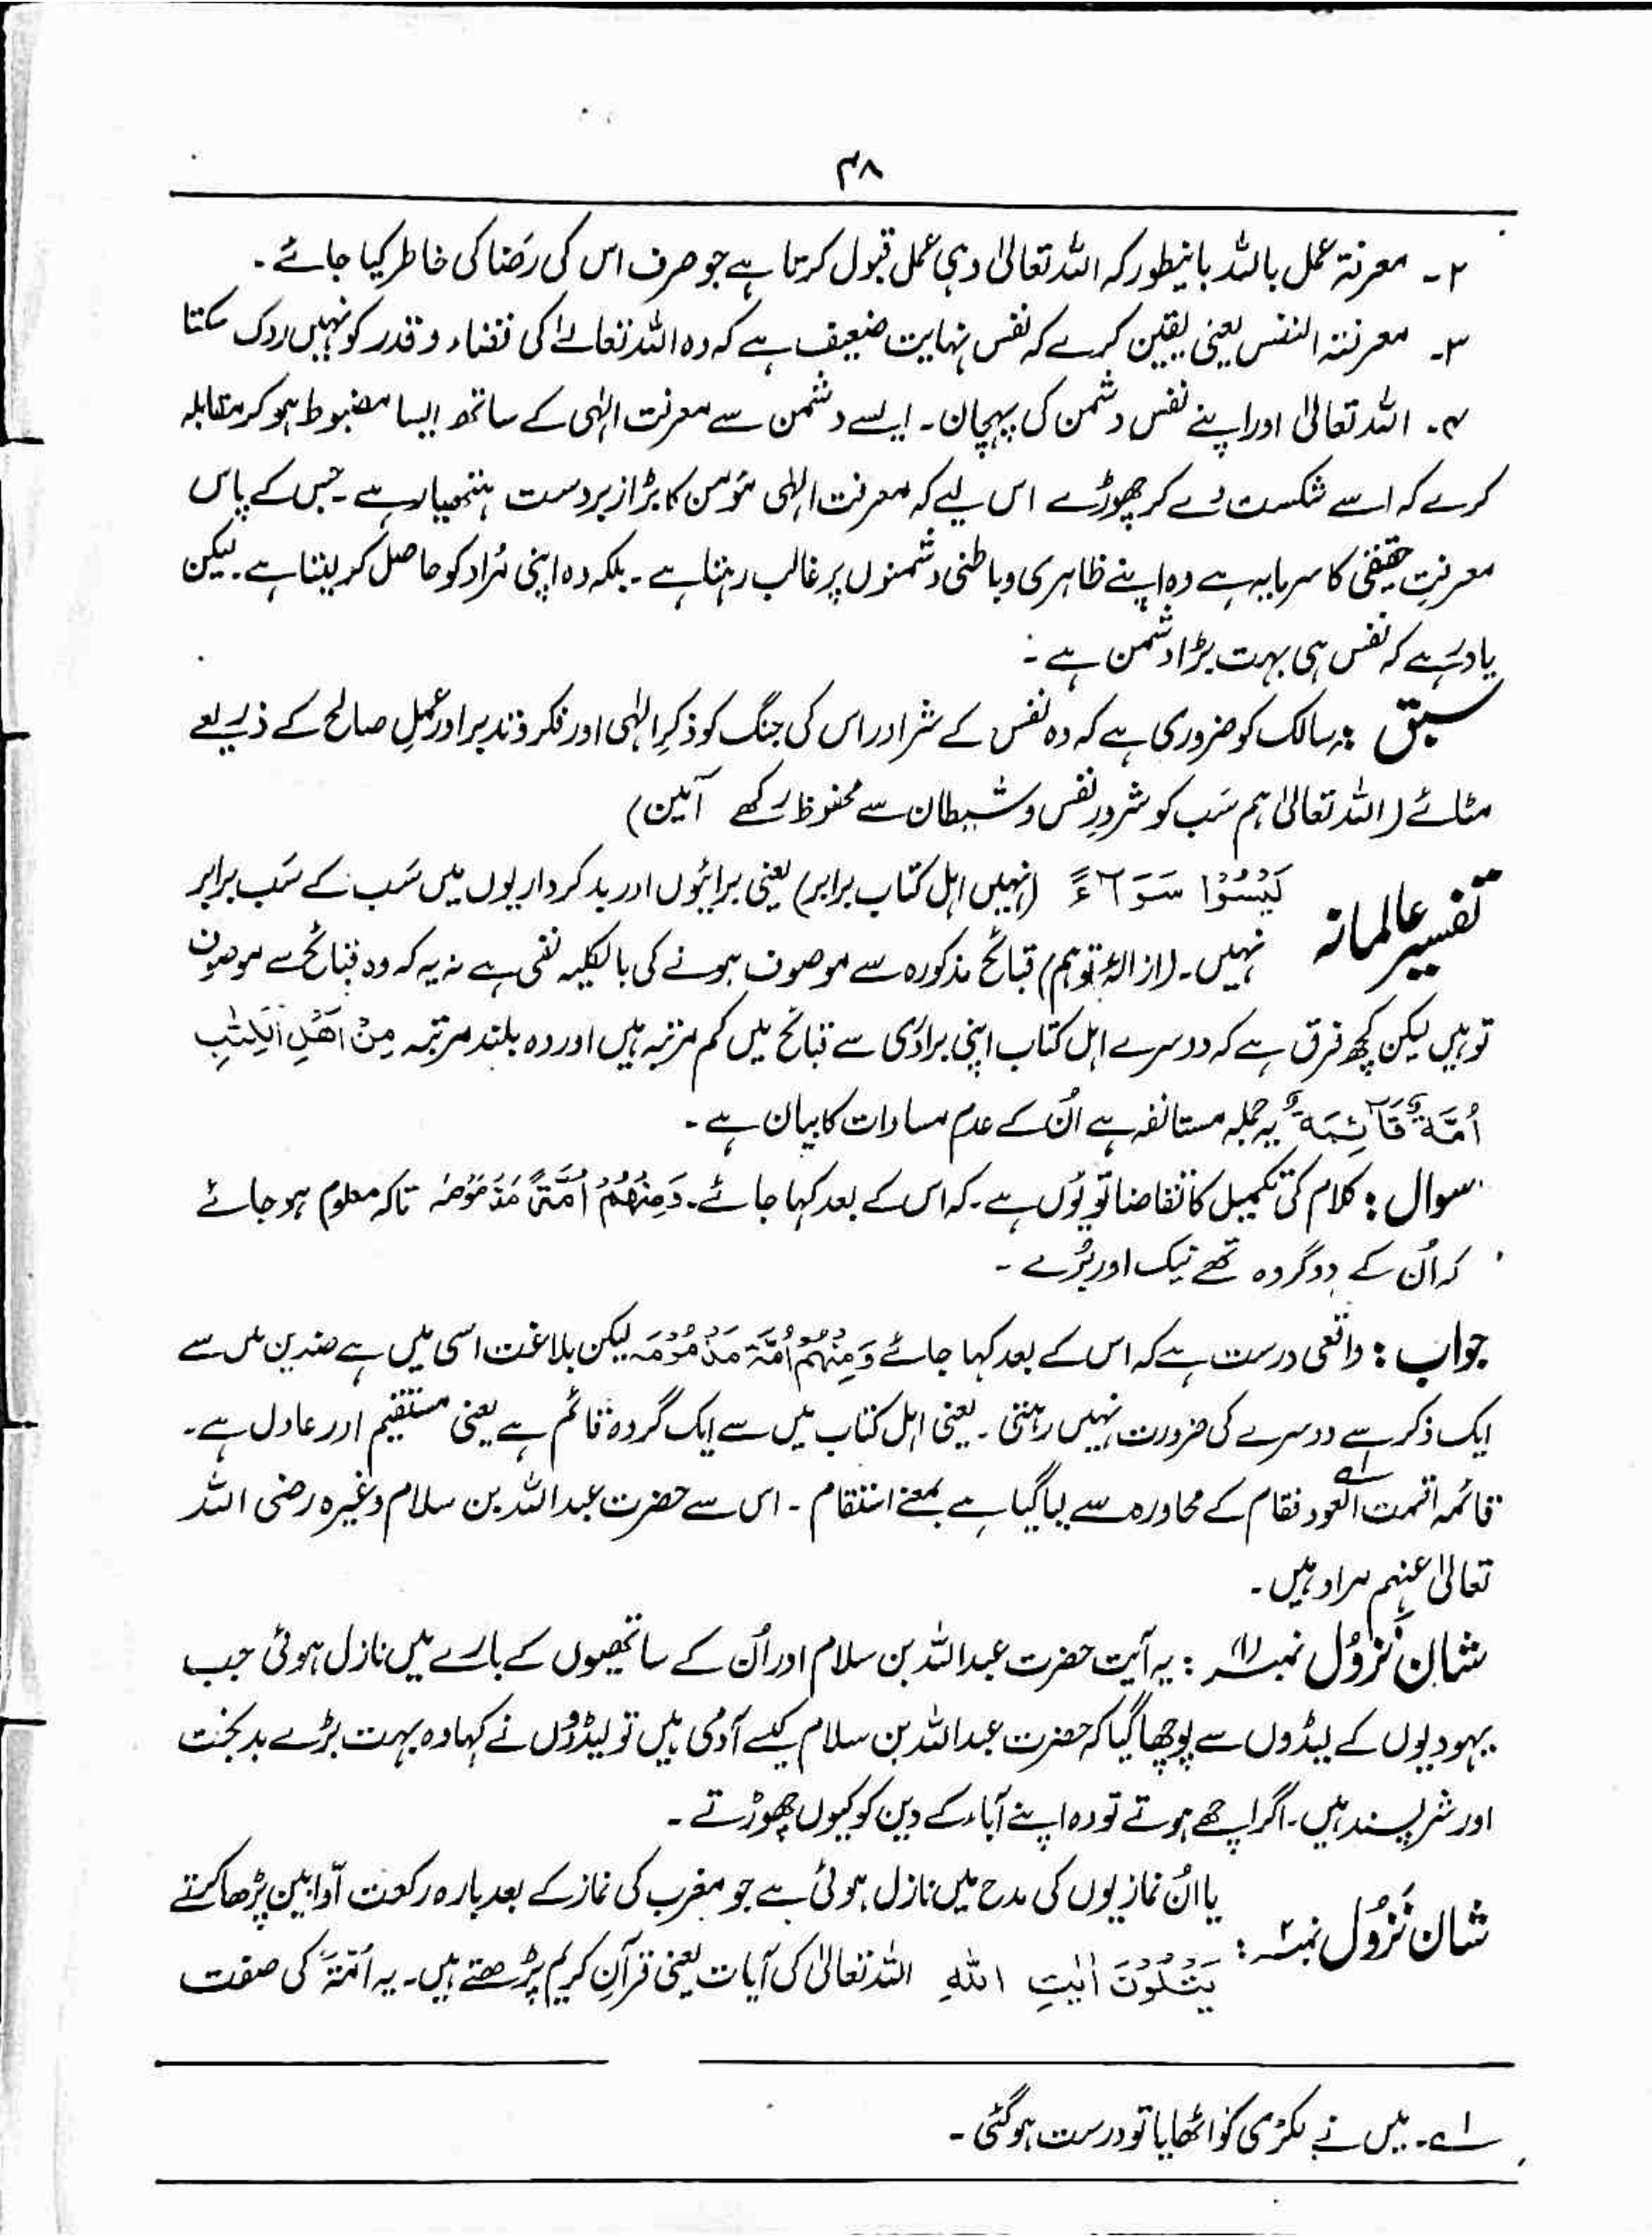 ۴۸
۲۔ معرفتہ عمل باللہ بایں‌طور کہ اللہ تعالیٰ وہی عمل قبول کرتا ہے جو صرف اس کی رَضا کی خاطر کیا جائے۔
۳۔ معرفتہ النفس یعنی یقین کرے کہ نفس نہایت ضعیف ہے کہ وہ اللہ تعالےٰ کی قضاء و قدر کو نہیں روک سکتا
۴۔ اللہ تعالیٰ اور اپنے نفس دشمن کی پہچان۔ ایسے دشمن سے معرفت الٰہی کے ساتھ ایسا مضبوط ہو کر مقابلہ
کرے کہ اسے شکست دے کر چھوڑے اس لیے کہ معرفت الٰہی مؤمن کا بڑا زبردست ہتھیار ہے۔ جس کے پاس
معرفتِ حقیقی کا سرمایہ ہے وہ اپنے ظاہری و باطنی دشمنوں پر غالب رہتا ہے۔ بلکہ وہ اپنی مُراد کو حاصل کر لیتا ہے۔ لیکن
یاد رہے کہ نفس ہی بہت بڑا دشمن ہے :
سبق :۔ سالک کو ضروری ہے کہ وہ نفس کے شر اور اس کی جنگ کو ذکرِ الٰہی اور فکر و تدبر اور عملِ صالح کے ذریعے
مٹائے (اللہ تعالیٰ ہم سَب کو شرورِ نفس و شیطان سے محفوظ رکھے آمین)
تفسیر عالمانہ لَيْسُوْا سَوَآءً (نہیں اہل کتاب برابر) یعنی برائیوں اور بدکرداریوں میں سَب کے سَب برابر
نہیں۔ (ازالۂ توہم) قبائح مذکورہ سے موصوف ہونے کی بالکلیہ نفی ہے نہ یہ کہ وہ قبائح سے موصوف
تو ہیں لیکن کچھ فرق ہے کہ دوسرے اہل کتاب اپنی برادری سے قبائح میں کم مرتبہ ہیں اور وہ بلند مرتبہ مِنْ اَهْلِ الْكِتٰبِ
اُمَّةٌ قَآئِمَةٌ یہ جملہ مستانفہ ہے اُن کے عدم مساوات کا بیان ہے۔
سوال : کلام کی تکمیل کا تقاضا تو یُوں ہے۔ کہ اس کے بعد کہا جائے۔ وَمِنْهُمْ اُمَّةً مَذْمُوْمَہ تاکہ معلوم ہو جائے
کہ اُن کے دو گروہ تھے نیک اور بُرے۔
جواب : واقعی درست ہے کہ اس کے بعد کہا جائے وَمِنْهُمْ اُمَّةٌ مَذْمُوْمَہ لیکن بلاغت اسی میں ہے ضدین میں سے
ایک ذکر سے دوسرے کی ضرورت نہیں رہتی۔ یعنی اہل کتاب میں سے ایک گروہ قائم ہے یعنی مستقیم اور عادل ہے۔
قائمہ اقمت العود فقام ۱؎ کے محاورہ سے لیا گیا ہے بمعنے استقام۔ اس سے حضرت عبداللہ بن سلام وغیرہ رضی اللہ
تعالیٰ عنہم مراد ہیں۔
شانِ نَزُوْل نمبر (۱) : یہ آیت حضرت عبداللہ بن سلام اور اُن کے ساتھیوں کے بارے میں نازل ہوئی جب
یہودیوں کے لیڈروں سے پوچھا گیا کہ حضرت عبداللہ بن سلام کیسے آدمی ہیں تو لیڈروں نے کہا وہ بہت بڑے بدبخت
اور شر پسند ہیں۔ اگر اچھے ہوتے تو وہ اپنے آباء کے دین کو کیوں چھوڑتے۔
شان نَزُوْل نمبر ۲ : یا اُن نمازیوں کی مدح میں نازل ہوئی ہے جو مغرب کی نماز کے بعد بارہ رکعت اوّابین پڑھا کرتے
يَتْلُوْنَ اٰيٰتِ اللهِ اللہ تعالیٰ کی آیات یعنی قرآن کریم پڑھتے ہیں۔ یہ اُمَّةٌ کی صفت
۱؎۔ میں نے لکڑی کو اٹھایا تو درست ہو گئی۔